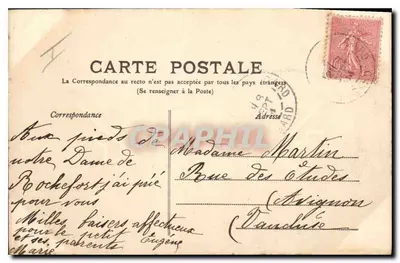 CARTE POSTALE
La Correspondance au recto n'est pas acceptée par tous les pays étrangers
(Se renseigner à la Poste)
Correspondance
Adresse
Aux pieds de
notre Dame de
Rochefort j'ai prié
pour vous
Milles baisers affectueux
pour le petit Eugène
et ses parents
Marie
Madame Martin
Rue des Études
Avignon
(Vaucluse)
CPAPHIL